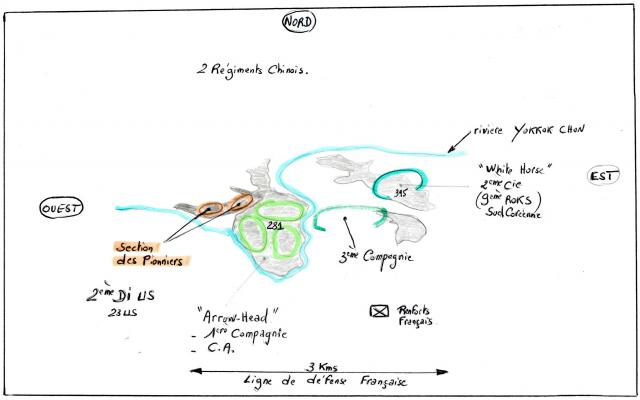 NORD
2 Régiments Chinois.
rivière YOKKOK CHON
"White Horse"
2ème Cie
(9ème ROKS)
Sud Coréenne
EST
395
OUEST
281
Section
des Pionniers
3ème Compagnie
2ème Di US
23 US
"Arrow-Head"
- 1ère Compagnie
- C.A.
Renforts
Français.
3 Kms
Ligne de défense Française